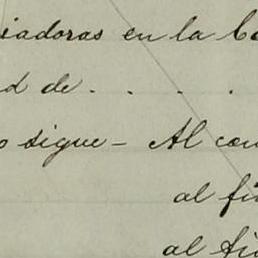 iadoras en la Co
d de. . . .
o sigue - Al con
al fi
al fi